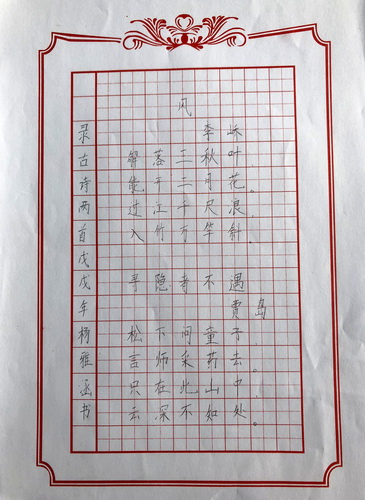 风
李峤
解落三秋叶
能开二月花。
过江千尺浪
入竹万竿斜。
寻隐者不遇
贾岛
松下问童子
言师采药去。
只在此山中
云深不知处。
录古诗两首戊戌年杨雅丞书